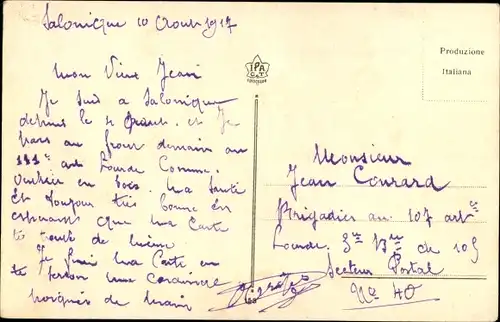 Salonique 10 Aout 1917
Mon Vieux Jean
Je suis a Salonique
depuis le 4 Aout. et Je
pars au front demain au
111e art Lourde Comme
en bois. Ma Santé
Et toujour très bonne En
esperant que Ma Carte
te trouve de meme.
Je fini Ma Carte en
te serran une
poignés de main
IPA
C.T.
Produzione
Italiana
Monsieur
Jean Conrard
Brigadier au 107 arte
Lourde. 3me Bie de 105
Secteur Postal
No 40